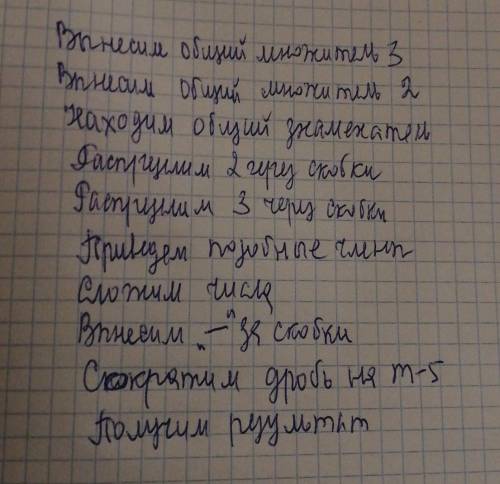 Вынесим общий множитель 3
Вынесим общий множитель 2
Находим общий знаменател
Распределим 2 через скобки
Распределим 3 через скобки
Приведем подобные члены
Сложим числа
Вынесим "—" за скобки
Сократим дробь на m-5
Получим результат